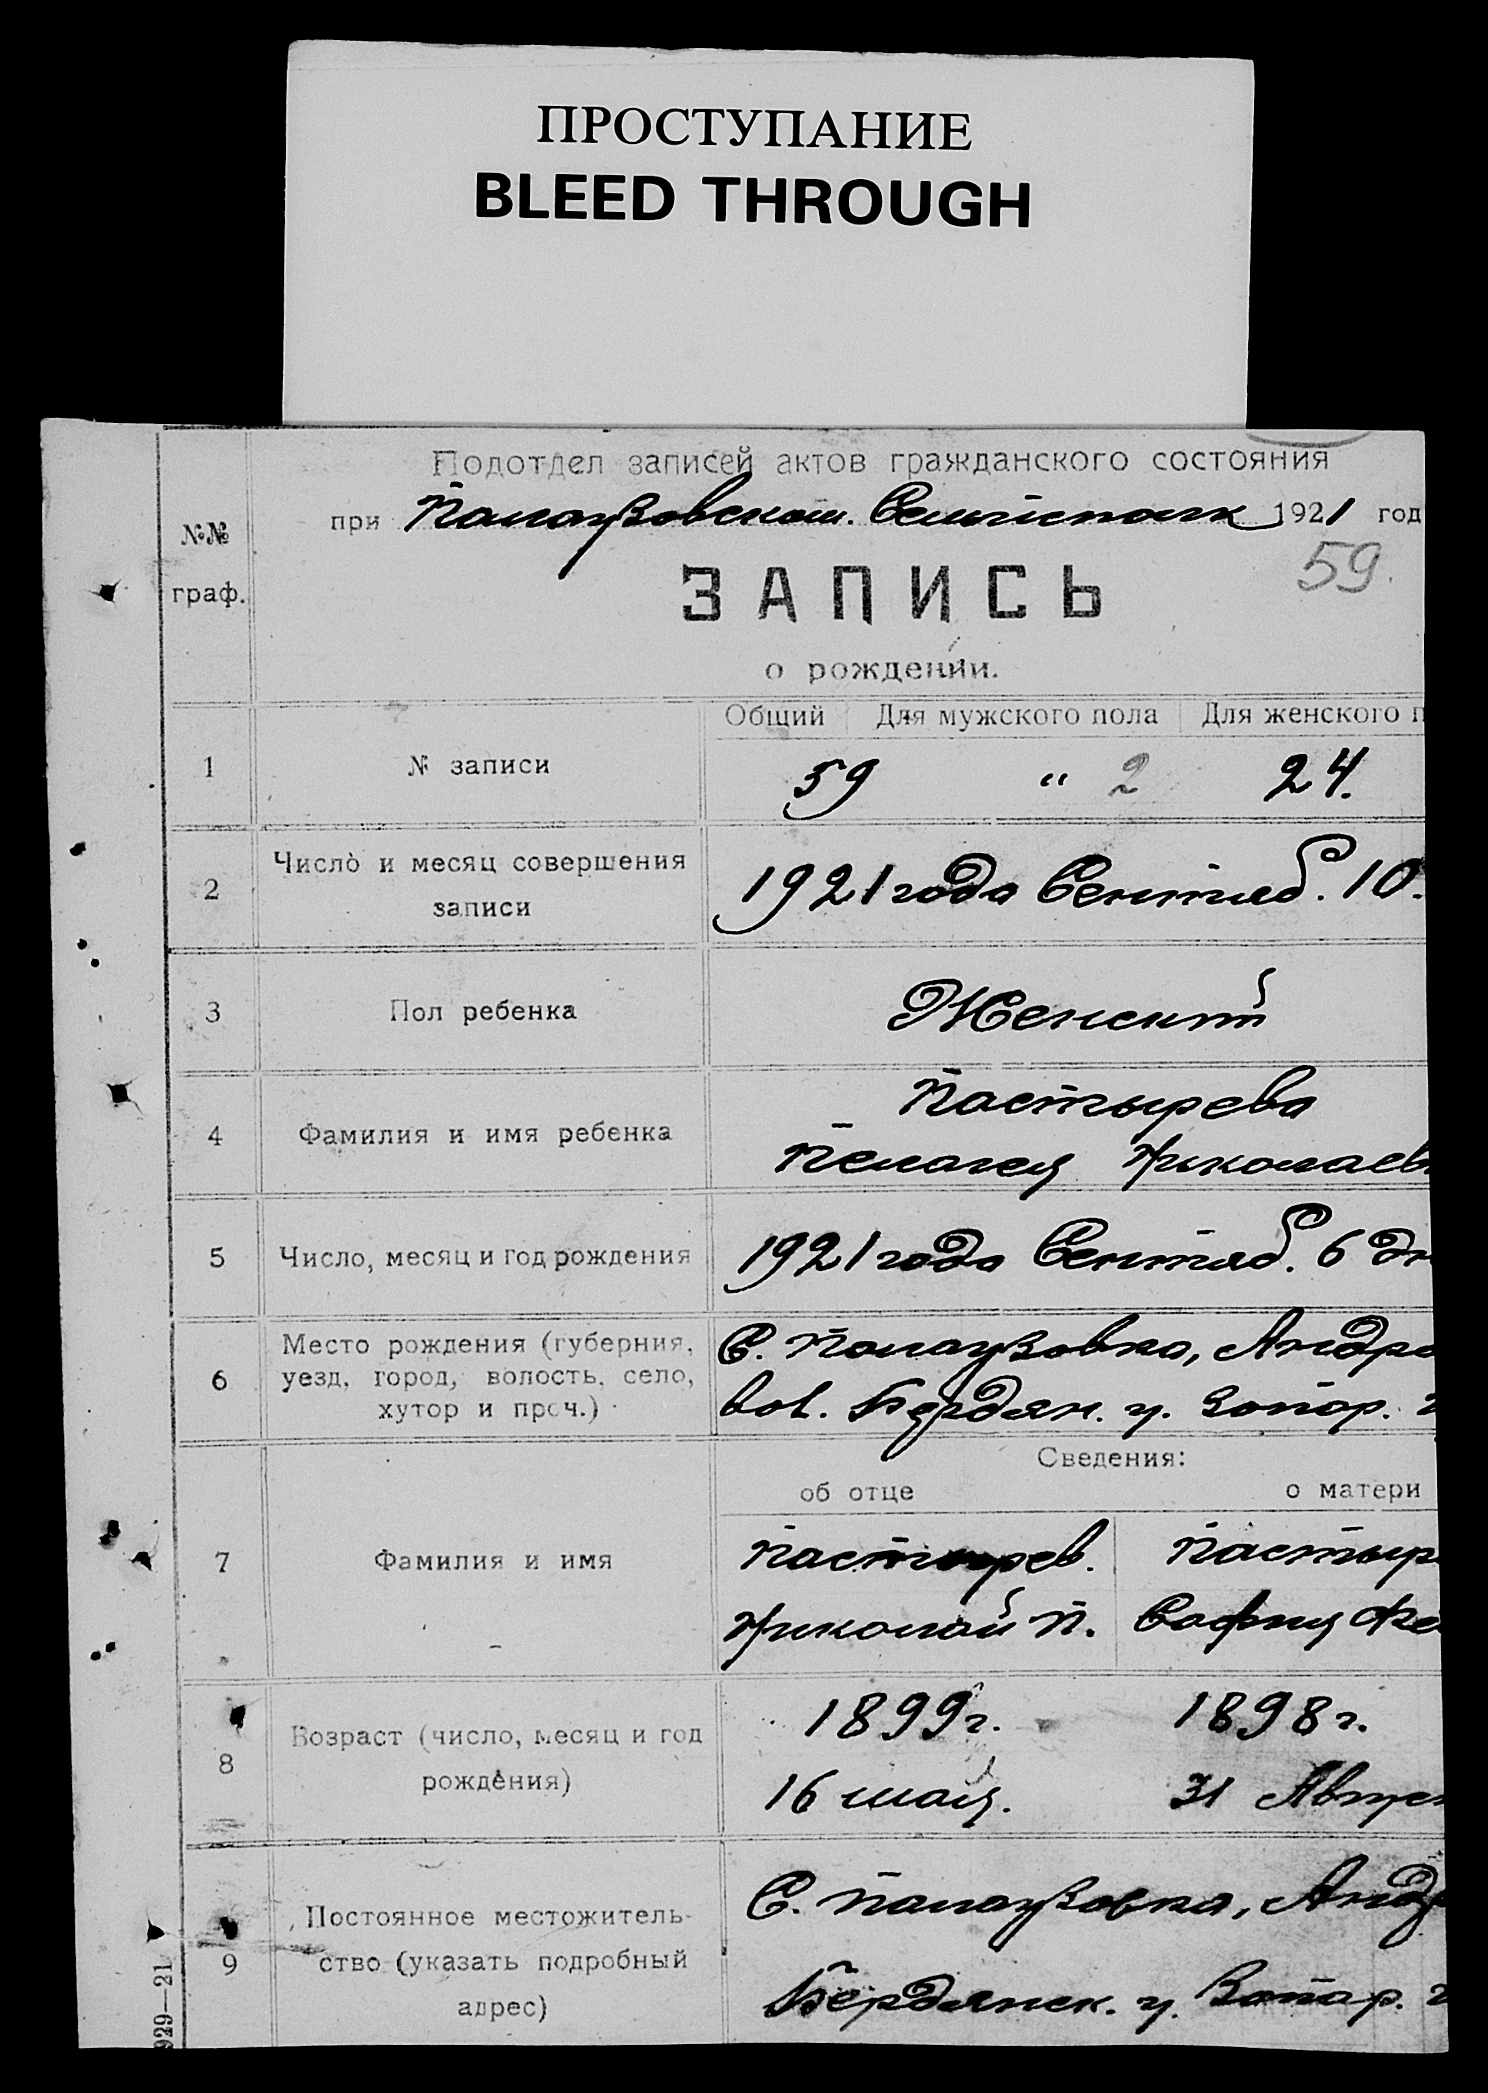 ПРОСТУПАНИЕ
BLEED THROUGH
Подотдел записей актов гражданского состояния
при Палаузовском. 1921 год
№№
граф.
ЗАПИСЬ
59.
о рождении.
Общий Для мужского пола Для женского п
1 № записи 59 " 2 24.
2 Число и месяц совершения записи
1921 года Сентяб. 10.
3 Пол ребенка Женский
4 Фамилия и имя ребенка
Пастырева
Пелагея Николаев
5 Число, месяц и год рождения 1921 года Сентяб. 6 дн
6 Место рождения (губерния,
уезд, город, волость, село,
хутор и проч.)
С. Палаузовка, Андро
вол. Бердян. у. Запор. г
Сведения:
об отце о матери
7 Фамилия и имя
Пастырев. Пастыр
Николай П. София Фе
8 Возраст (число, месяц и год
рождения)
1899 г. 1898 г.
16 мая. 31 Август
9 Постоянное местожитель-
ство (указать подробный
адрес)
С. Палаузовка, Андр
Бердянск. у. Запор. г
929—21